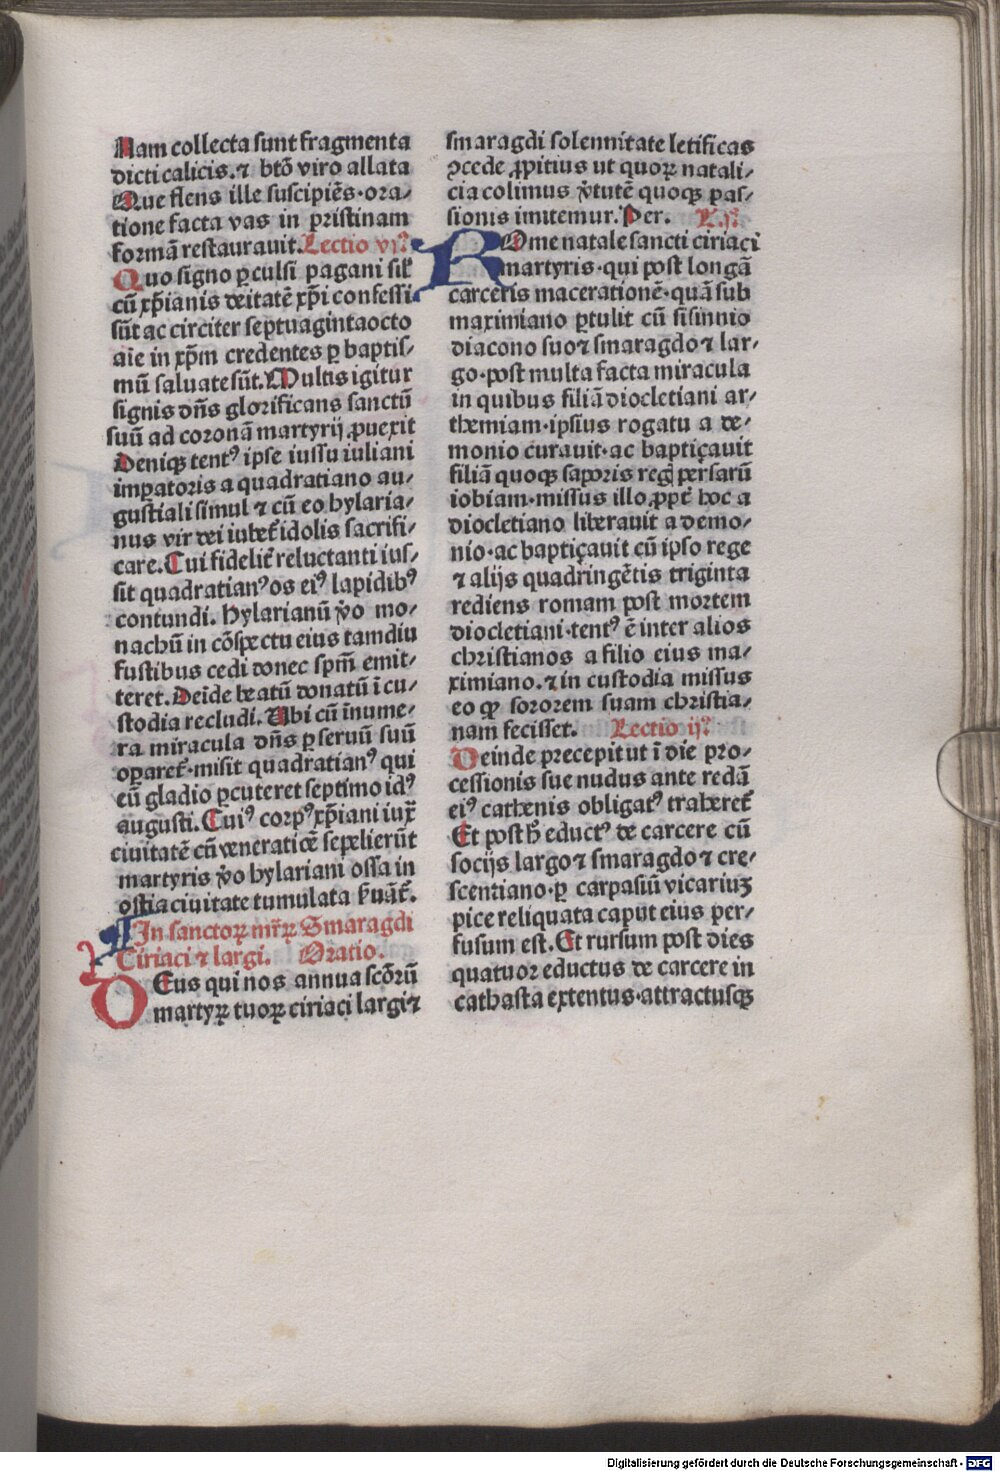 Nam collecta sunt fragmenta
dicti calicis. ⁊ btõ viro allata
Que flens ille suscipiẽs·ora⸗
tione facta vas in pristinam
formã restaurauit. Lectio vj.ª
Quo signo ꝑculsi pagani sił
cũ xp̃ianis deitatẽ xp̃i confessi
sũt ac circiter septuagintaocto
aĩe in xp̃m credentes ꝑ baptis⸗
mũ saluate sũt. Multis igitur
signis dñs glorificans sanctũ
suũ ad coronã martyrij ꝓuexit
Deniqꝫ tentꝰ ipse iussu iuliani
impatoris a quadratiano au⸗
gustiali simul ⁊ cũ eo hylaria⸗
nus vir dei iubet᷑ idolis sacrifi⸗
care. Cui fidelit᷑ reluctanti ius⸗
sit quadratianꝰ os eiꝰ lapidibꝰ
contundi. Hylarianũ ṽo mo⸗
nachũ in cõspectu eius tamdiu
fustibus cedi donec spm̃ emit⸗
teret. Deĩde beatũ donatũ ĩ cu⸗
stodia recludi. Ubi cũ ĩnume⸗
ra miracula dñs ꝑ seruũ suũ
oꝑaret᷑·misit quadratianꝰ qui
eũ gladio ꝑcuteret septimo idꝰ
augusti. Cuiꝰ corpꝰ xp̃iani iux̃
ciuitatẽ cũ veneratiõe sepelierũt
martyris ṽo hylariani ossa in
ostia ciuitate tumulata ẜuãt᷑.
In sanctoꝝ mr̃ꝝ Smaragdi
Ciriaci ⁊ largi. Oratio.
DEus qui nos annua scõrũ
martyꝝ tuoꝝ ciriaci largi ⁊
smaragdi solennitate letificas
ꝯcede ꝓpitius ut quoꝝ natali⸗
cia colimus ṽtutẽ quoqꝫ pas⸗
sionis imitemur. Per. L.j.ª
ROme natale sancti ciriaci
martyris·qui post longã
carceris macerationẽ·quã sub
maximiano ꝑtulit cũ sisinnio
diacono suo ⁊ smaragdo ⁊ lar⸗
go·post multa facta miracula
in quibus filiã diocletiani ar⸗
themiam·ipsius rogatu a de⸗
monio curauit·ac baptiçauit
filiã quoqꝫ saporis reg̃ persarũ
iobiam·missus illo ꝓpt᷑ hoc a
diocletiano liberauit a demo⸗
nio·ac baptiçauit cũ ipso rege
⁊ alijs quadringẽtis triginta
rediens romam post mortem
diocletiani·tentꝰ ẽ inter alios
christianos a filio eius ma⸗
ximiano. ⁊ in custodia missus
eo ꝙ sororem suam christia⸗
nam fecisset. Lectio ij.ª
Deinde precepit ut ĩ die pro⸗
cessionis sue nudus ante redã
eiꝰ cathenis obligatꝰ traheret᷑
Et post h̃ eductꝰ de carcere cũ
socijs largo ⁊ smaragdo ⁊ cre⸗
scentiano·ꝑ carpasiũ vicariuꝫ
pice reliquata caput eius per⸗
fusum est. Et rursum post dies
quatuor eductus de carcere in
cathasta extentus·attractusqꝫ
Digitalisierung gefördert durch die Deutsche Forschungsgemeinschaft - DFG